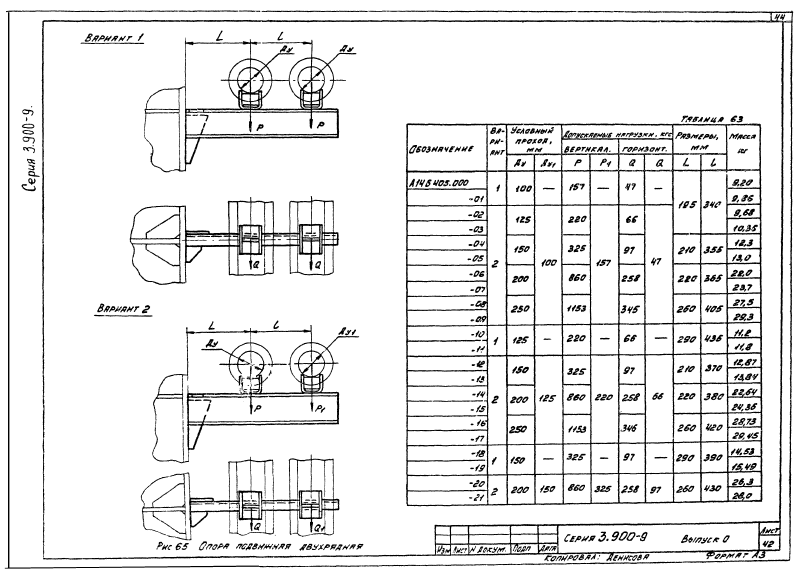 44
Серия 3.900-9.
Вариант 1
L L
Ду Ду
P P
Q Q
Вариант 2
L L
Ду Ду1
P P1
Q Q1
Рис 65 Опора подвижная двухрядная
Таблица 63
Обозначение Вариант Условный проход, мм Допускаемые нагрузки, кгс Размеры, мм Масса кг
вертикал. горизонт.
Ду Ду1 P P1 Q Q L l
А14Б405.000 1 100 — 157 — 47 — 195 340 9,20
-01 9,36
-02 2 125 100 220 157 66 47 9,68
-03 10,35
-04 150 325 97 210 355 12,3
-05 13,0
-06 200 860 258 220 365 22,0
-07 23,7
-08 250 1153 345 260 405 27,5
-09 29,3
-10 1 125 — 220 — 66 — 290 435 11,2
-11 11,8
-12 2 150 125 325 220 97 66 210 370 12,87
-13 13,84
-14 200 860 258 220 380 22,64
-15 24,36
-16 250 1153 346 260 420 28,73
-17 29,45
-18 1 150 — 325 — 97 — 290 390 14,53
-19 15,49
-20 2 200 150 860 325 258 97 260 430 26,3
-21 28,0
Изм Лист N докум. Подп Дата
Серия 3.900-9 Выпуск 0
Лист
42
Копировал: Денисова Формат А3